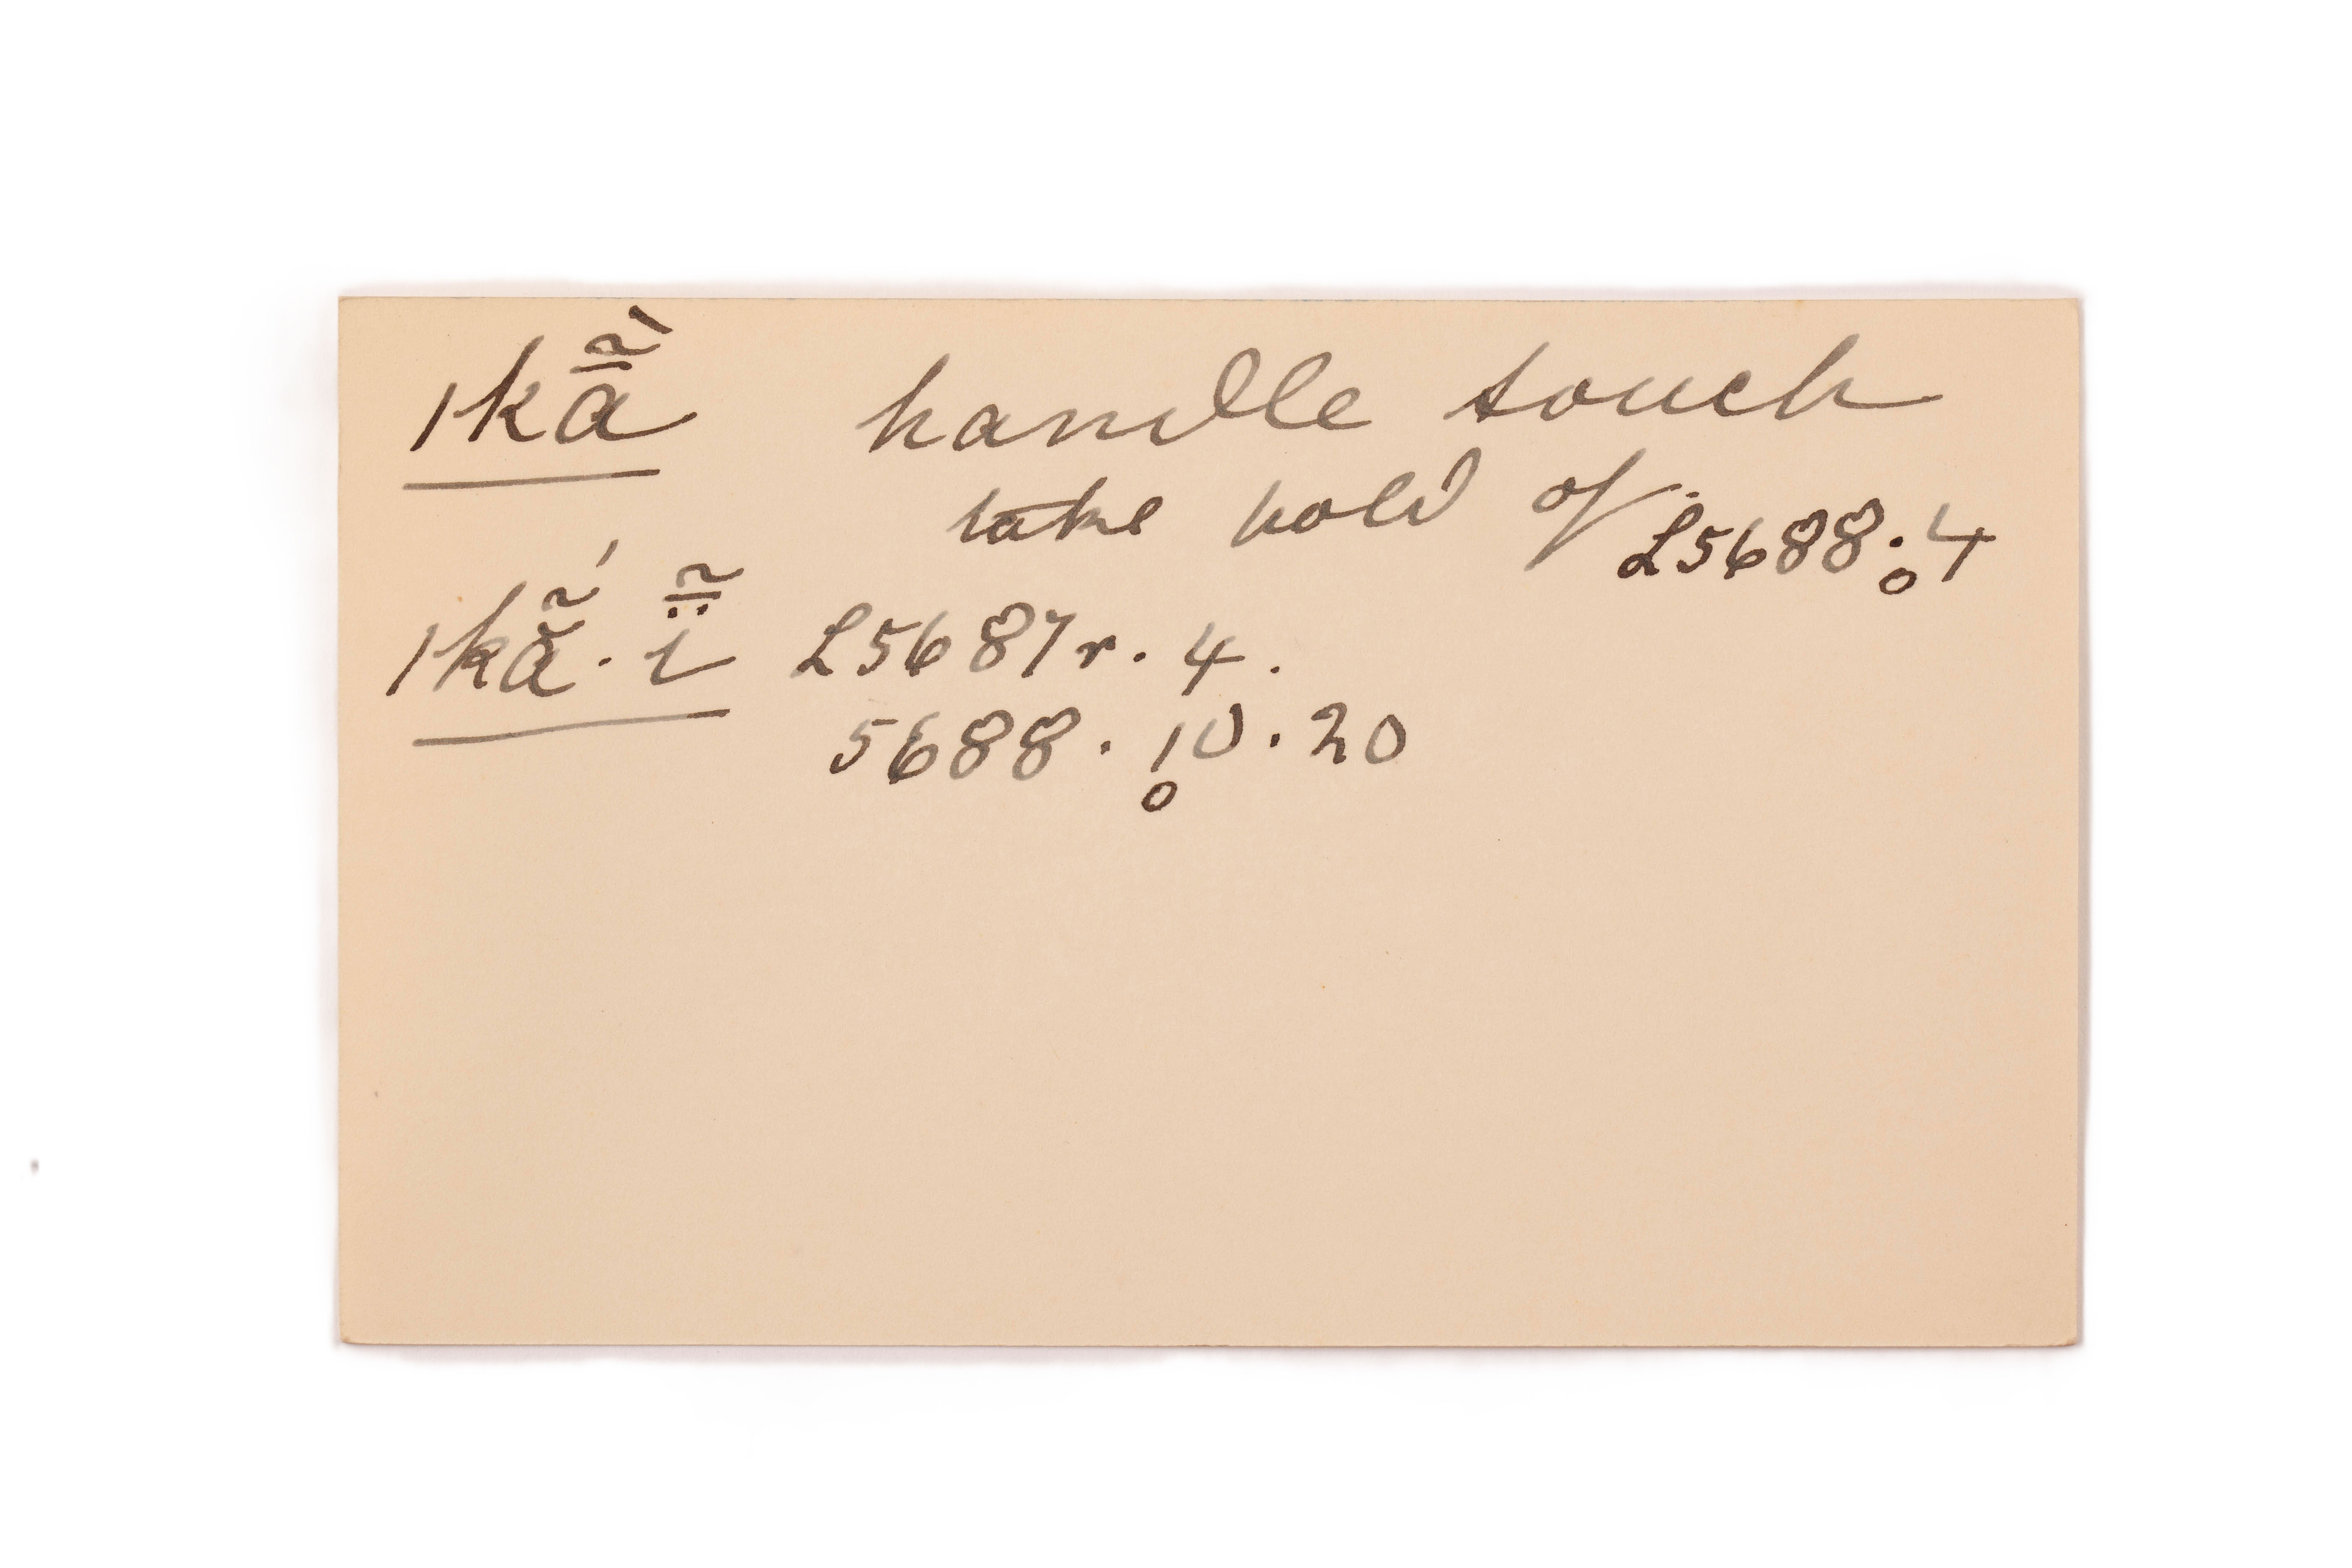 ǀkã̄̀ handle touch
take hold of L5688.̥4
ǀkã̃́.ï̄̃ L5687r.4.
5688.1̥0.20